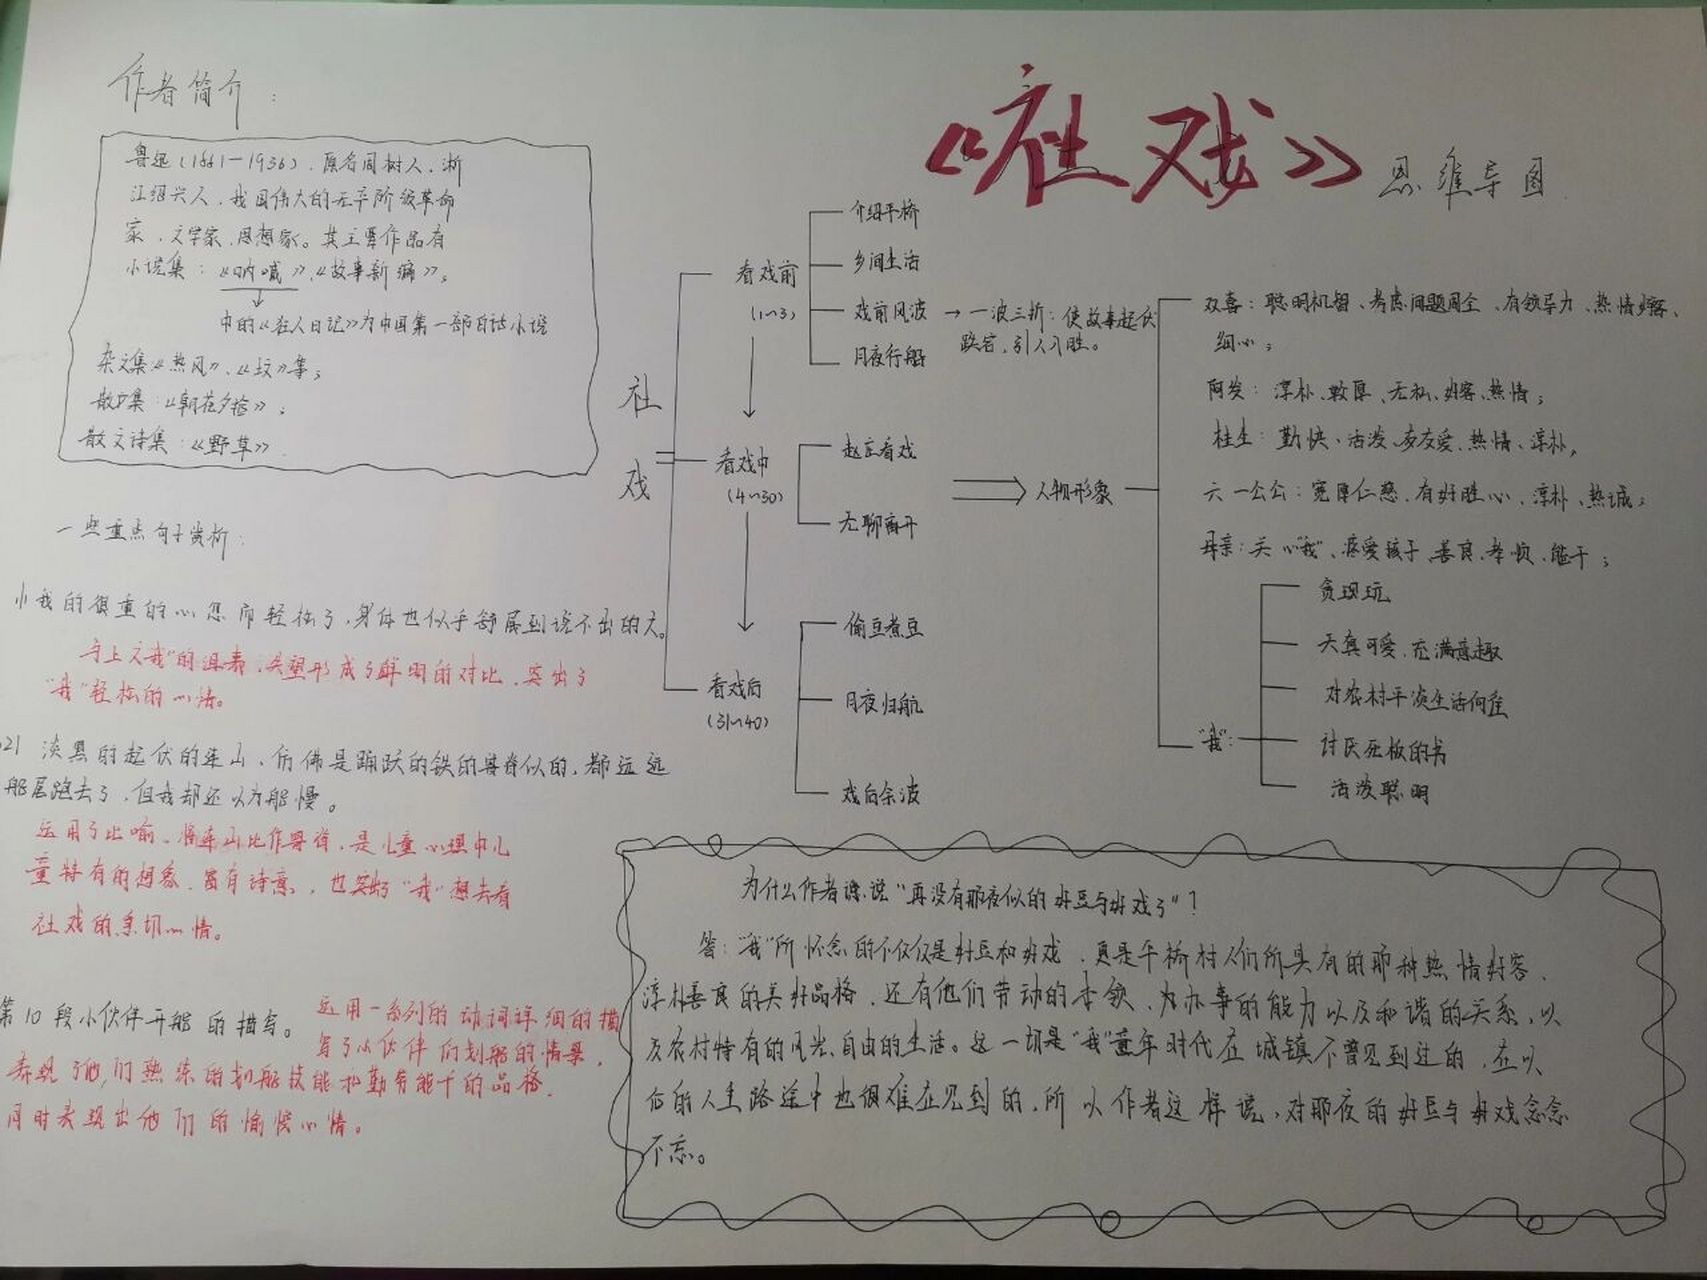 《社戏》思维导图
作者简介：
鲁迅(1881—1936)，原名周树人，浙
江绍兴人，我国伟大的无产阶级革命
家、文学家、思想家。其主要作品有
小说集：《呐喊》、《故事新编》，
中的《狂人日记》为中国第一部白话小说
杂文集《热风》、《坟》等；
散文集：《朝花夕拾》；
散文诗集：《野草》
一些重点句子赏析：
我的很重的心忽而轻松了，身体也似乎舒展到说不出的大。
与上文"我"的沮丧、失望形成了鲜明的对比，突出了
"我"轻松的心情。
淡黑的起伏的连山，仿佛是踊跃的铁的兽脊似的，都远远
船尾跑去了，但我却还以为船慢。
运用了比喻，将连山比作兽脊，是儿童心理中儿
童特有的想象，富有诗意，也突出了"我"想去看
社戏的急切心情。
第10段小伙伴开船的描写。
运用一系列的动词详细的描
写了小伙伴们划船的情景，
表现了他们熟练的划船技能和勤劳能干的品格，
同时表现出他们的愉悦心情。
社戏
看戏前
(1~3)
介绍平桥
乡间生活
戏前风波
月夜行船
→一波三折：使故事起伏
跌宕，引人入胜。
看戏中
(4~30)
赵庄看戏
无聊离开
看戏后
(31~40)
偷豆煮豆
月夜归航
戏后余波
人物形象
双喜：聪明机智、考虑问题周全、有领导力、热情好客、
细心；
阿发：淳朴、敦厚、无私、好客、热情；
桂生：勤快、活泼、友爱、热情、淳朴，
六一公公：宽厚仁慈、有好胜心、淳朴、热诚；
母亲：关心"我"、疼爱孩子、善良、孝顺、能干；
"我"：
贪玩
天真可爱、充满童趣
对农村平淡生活向往
讨厌死板的书
活泼聪明
为什么作者说"再没有那夜似的好豆与好戏了"？
答："我"所怀念的不仅仅是好豆和好戏，更是平桥村人们所具有的那种热情好客、
淳朴善良的美好品格，还有他们劳动的本领、为办事的能力以及和谐的关系，以
及农村特有的风光、自由的生活。这一切是"我"童年时代在城镇不曾见到过的，在以
后的人生路途中也很难在见到的，所以作者这样说，对那夜的好豆与好戏念念
不忘。